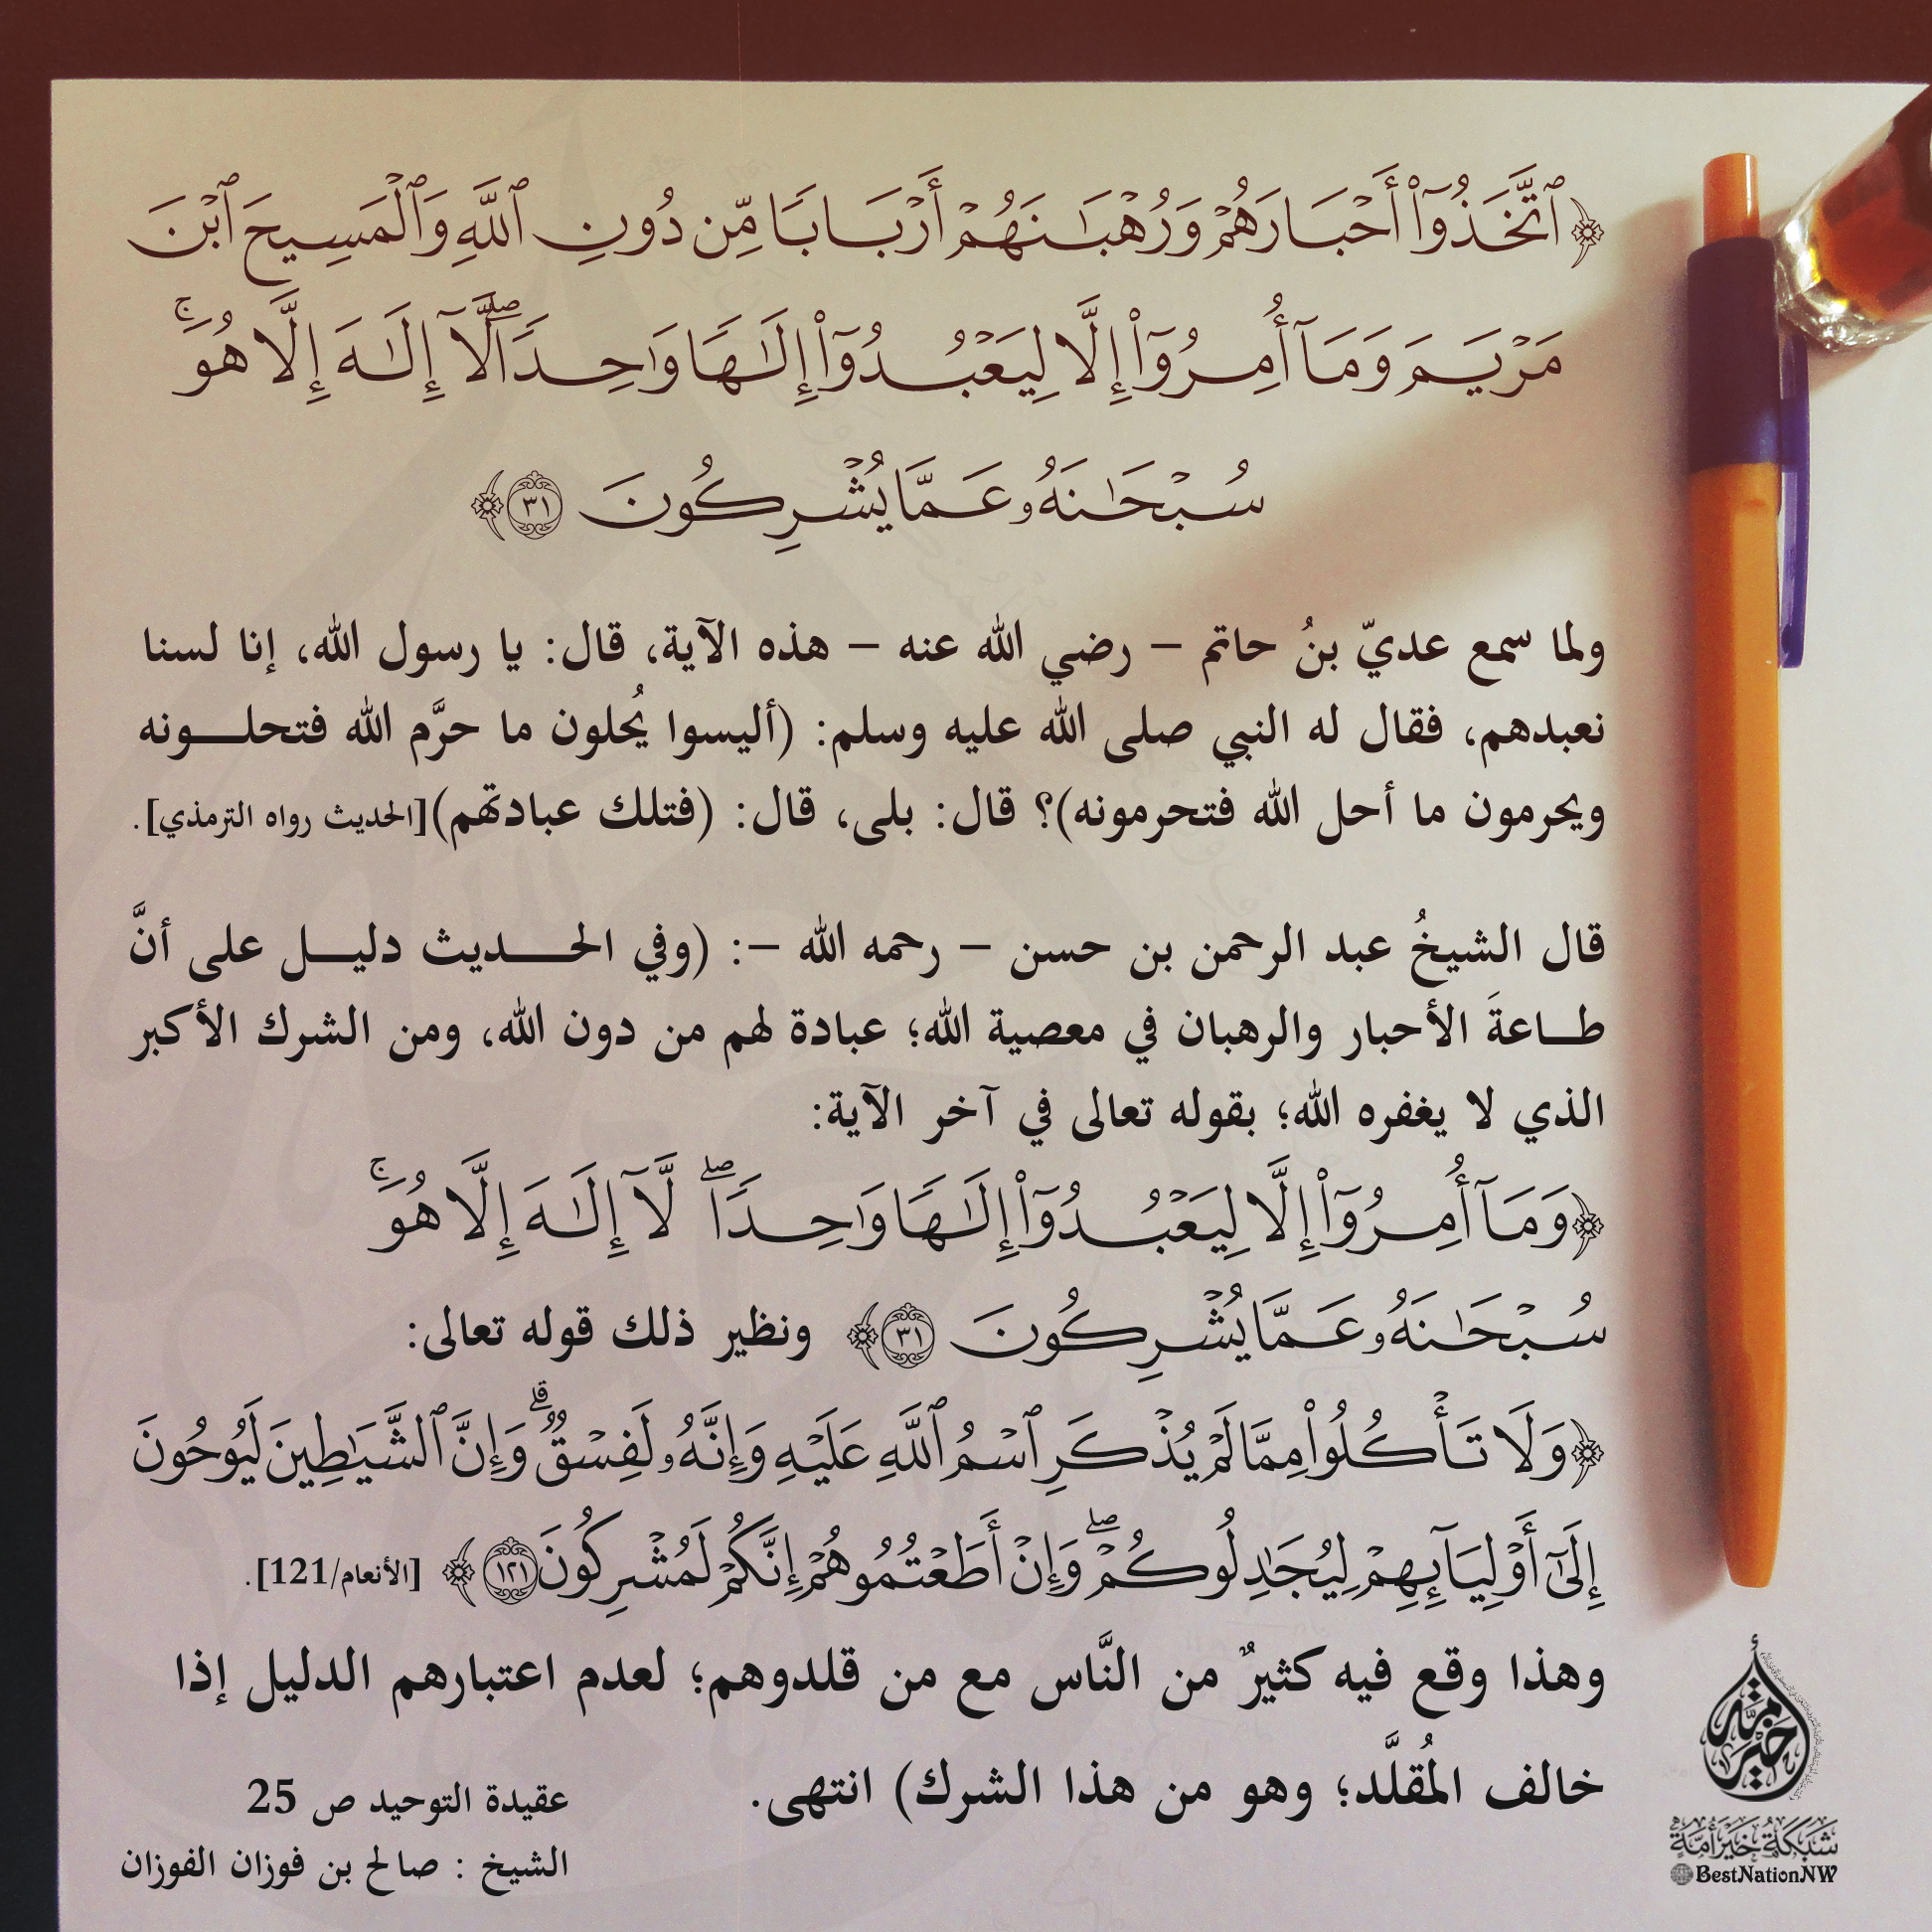 ﴿ٱتَّخَذُوٓا۟ أَحْبَارَهُمْ وَرُهْبَـٰنَهُمْ أَرْبَابًا مِّن دُونِ ٱللَّهِ وَٱلْمَسِيحَ ٱبْنَ
مَرْيَمَ وَمَآ أُمِرُوٓا۟ إِلَّا لِيَعْبُدُوٓا۟ إِلَـٰهًا وَٰحِدًا ۖ لَّآ إِلَـٰهَ إِلَّا هُوَ ۚ
سُبْحَـٰنَهُۥ عَمَّا يُشْرِكُونَ ٣١﴾
ولما سمع عديّ بنُ حاتم – رضي الله عنه – هذه الآية، قال: يا رسول الله، إنا لسنا
نعبدهم، فقال له النبي صلى الله عليه وسلم: (أليسوا يُحلون ما حرَّم الله فتحلـــونه
ويحرمون ما أحل الله فتحرمونه)؟ قال: بلى، قال: (فتلك عبادتهم)[الحديث رواه الترمذي].
قال الشيخُ عبد الرحمن بن حسن – رحمه الله –: (وفي الحــــديث دليــل على أنَّ
طــاعةَ الأحبار والرهبان في معصية الله؛ عبادة لهم من دون الله، ومن الشرك الأكبر
الذي لا يغفره الله؛ بقوله تعالى في آخر الآية:
﴿وَمَآ أُمِرُوٓا۟ إِلَّا لِيَعْبُدُوٓا۟ إِلَـٰهًا وَٰحِدًا ۖ لَّآ إِلَـٰهَ إِلَّا هُوَ ۚ
سُبْحَـٰنَهُۥ عَمَّا يُشْرِكُونَ ٣١﴾ ونظير ذلك قوله تعالى:
﴿وَلَا تَأْكُلُوا۟ مِمَّا لَمْ يُذْكَرِ ٱسْمُ ٱللَّهِ عَلَيْهِ وَإِنَّهُۥ لَفِسْقٌ ۗ وَإِنَّ ٱلشَّيَـٰطِينَ لَيُوحُونَ
إِلَىٰٓ أَوْلِيَآئِهِمْ لِيُجَـٰدِلُوكُمْ ۖ وَإِنْ أَطَعْتُمُوهُمْ إِنَّكُمْ لَمُشْرِكُونَ ١٢١﴾ [الأنعام/121].
وهذا وقع فيه كثيرٌ من النَّاس مع من قلدوهم؛ لعدم اعتبارهم الدليل إذا
خالف المُقلَّد؛ وهو من هذا الشرك) انتهى.
عقيدة التوحيد ص 25
الشيخ : صالح بن فوزان الفوزان
خير أمة
شبكة خير أمة
BestNationNW